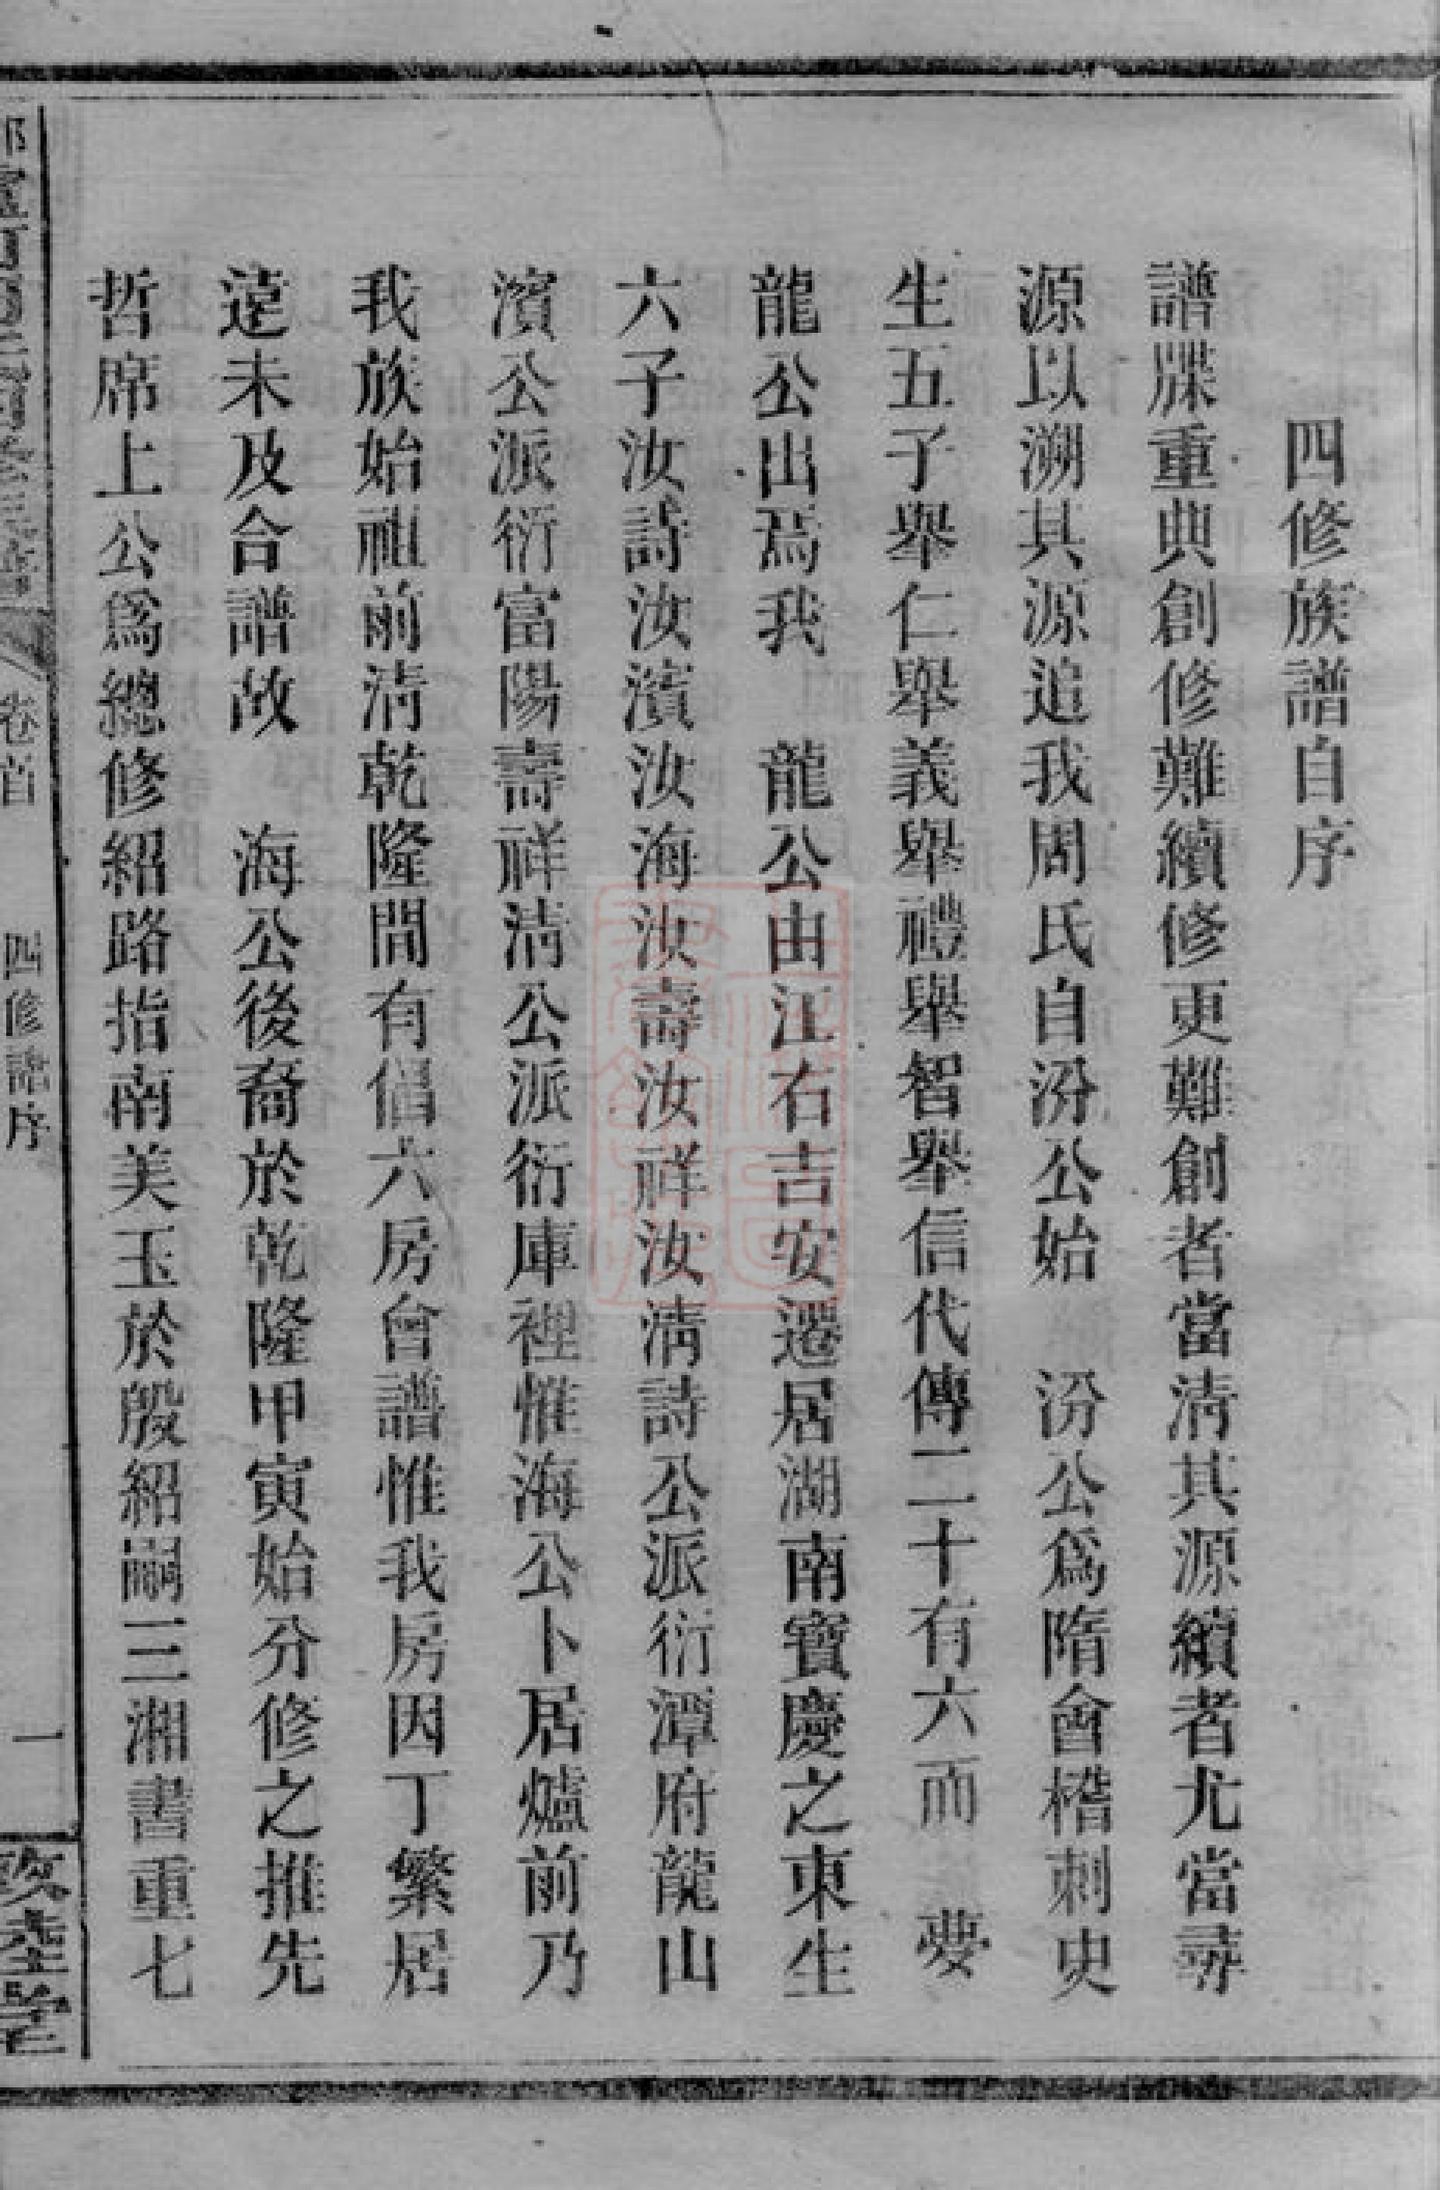 四修族譜自序
譜牒重典創修難續修更難創者當清其源續者尤當尋
源以溯其源追我周氏自汾公始　汾公爲隋會稽刺史
生五子舉仁舉義舉禮舉智舉信代傳二十有六而　夢
龍公出焉我　龍公由江右吉安遷居湖南寶慶之東生
六子汝詩汝濱汝海汝壽汝祥汝淸詩公派衍潭府龍山
濱公派衍富陽壽祥淸公派衍庫裡惟海公卜居爐前乃
我族始祖前淸乾隆間有倡六房會譜惟我房因丁繁居
遠未及合譜故　海公後裔於乾隆甲寅始分修之推先
哲席上公爲總修紹路指南美玉於殷紹嗣三湘書重七
卷首　四修譜序　一